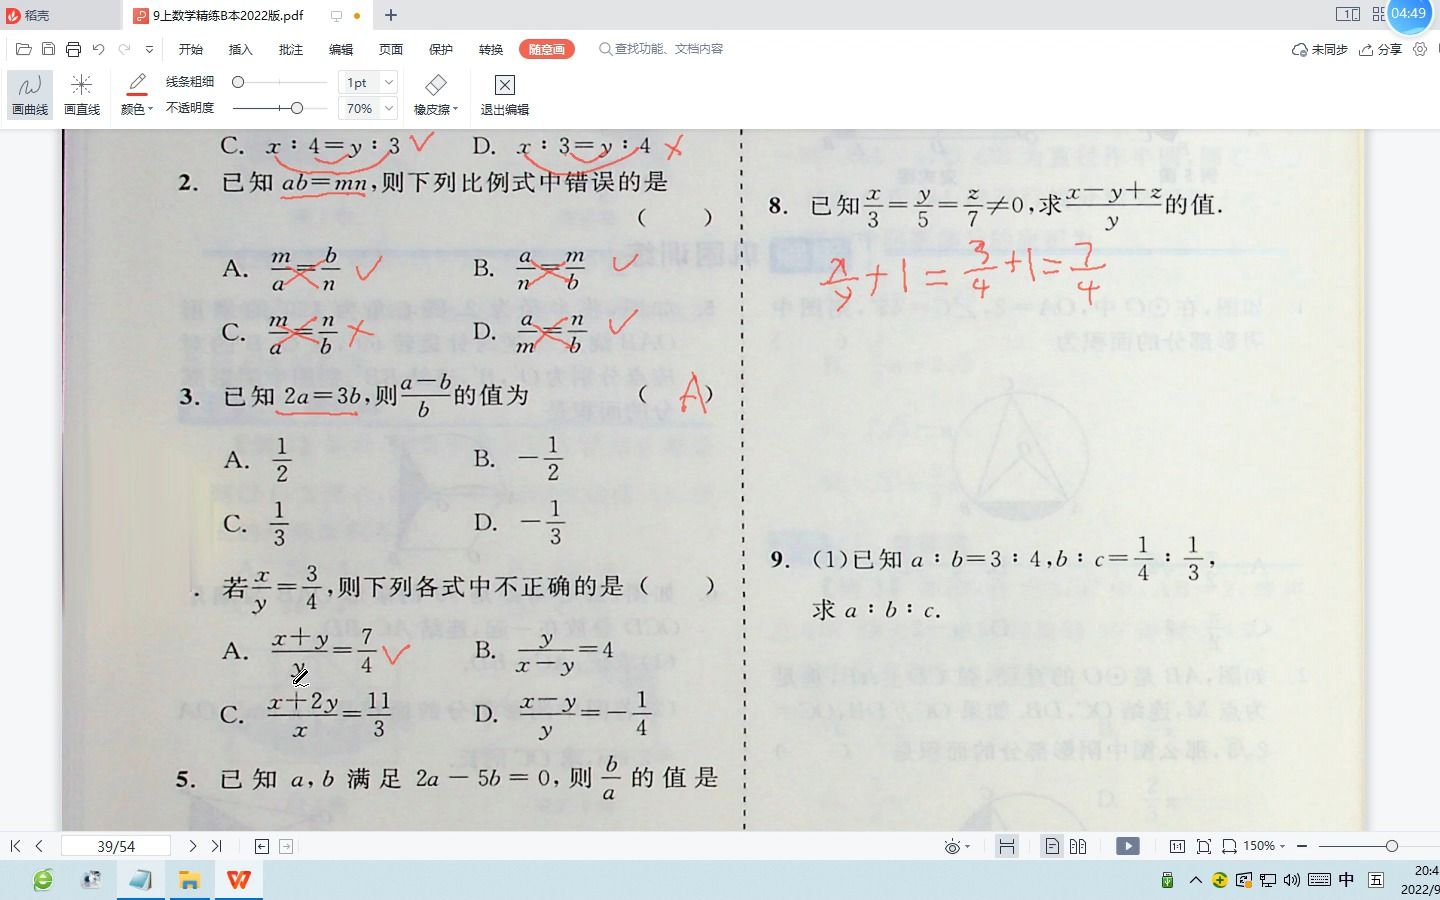 稻壳
9上数学精练B本2022版.pdf
04:49
开始 插入 批注 编辑 页面 保护 转换 随意画 查找功能、文档内容 未同步 分享
画曲线 画直线 颜色 线条粗细 1pt 不透明度 70% 橡皮擦 退出编辑
C. x∶4=y∶3 ✓ D. x∶3=y∶4 ×
2. 已知 ab=mn,则下列比例式中错误的是
( )
A. m/a=b/n ✓ B. a/n=m/b ✓
C. m/a=n/b × D. a/m=n/b ✓
3. 已知 2a=3b,则(a-b)/b的值为 ( A )
A. 1/2 B. -1/2
C. 1/3 D. -1/3
. 若x/y=3/4,则下列各式中不正确的是( )
A. (x+y)/y=7/4 ✓ B. y/(x-y)=4
C. (x+2y)/x=11/3 D. (x-y)/y=-1/4
5. 已知 a,b 满足 2a-5b=0,则 b/a 的值是
8. 已知x/3=y/5=z/7≠0,求(x-y+z)/y的值.
x/y+1=3/4+1=7/4
9. (1)已知 a∶b=3∶4,b∶c=1/4∶1/3,
求 a∶b∶c.
39/54
150%
中 五
20:4
2022/9